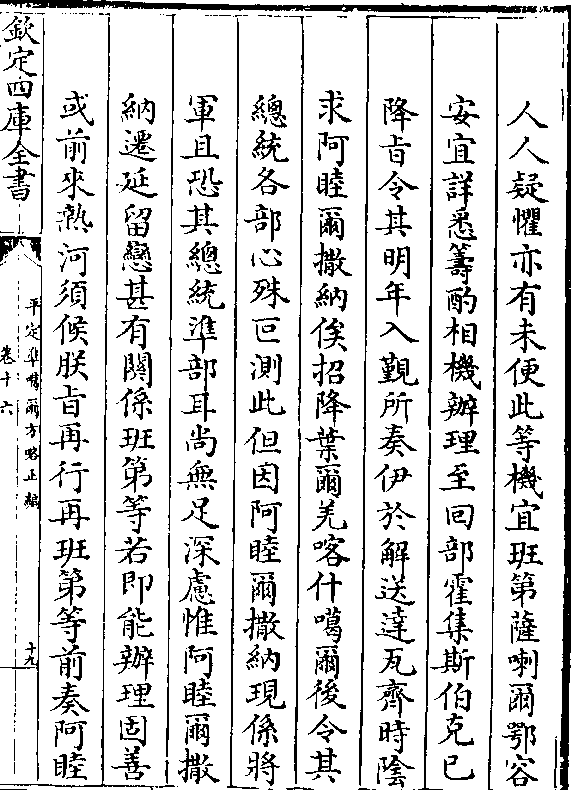 人人疑懼亦有未便此等機宜班第薩喇爾鄂容
安宜詳悉籌酌相機辦理至回部霍集斯伯克已
降旨令其明年入覲所奏伊於解送達瓦齊時陰
求阿睦爾撒納俟招降葉爾羌喀什噶爾後令其
總統各部心殊叵測此但因阿睦爾撒納現係將
軍且恐其總統準部耳尚無足深慮惟阿睦爾撒
納遷延留戀甚有關係班第等若即能辦理固善
或前來熱河須候朕旨再行再班第等前奏阿睦
欽定四庫全書
平定準噶爾方略正編
卷十六
十九